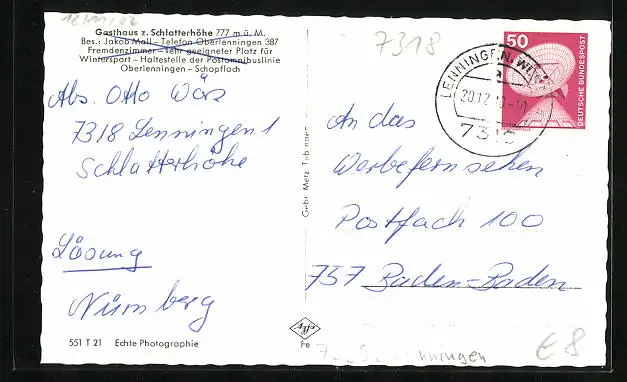 Gasthaus z. Schlatterhöhe 777 m ü. M.
Bes.: Jakob Moll – Telefon Oberlenningen 387
Fremdenzimmer – sehr geeigneter Platz für
Wintersport – Haltestelle der Postomnibuslinie
Oberlenningen – Schopfloch
Abs. Otto Wörz
7318 Lenningen 1
Schlatterhöhe
Lösung
Nürnberg
551 T 21 Echte Photographie
Gebr. Metz, Tübingen
7318
LENNINGEN, WÜRTT
20.12.
7318
50
DEUTSCHE BUNDESPOST
An das
Werbefernsehen
Postfach 100
757 Baden-Baden
Fe
€8